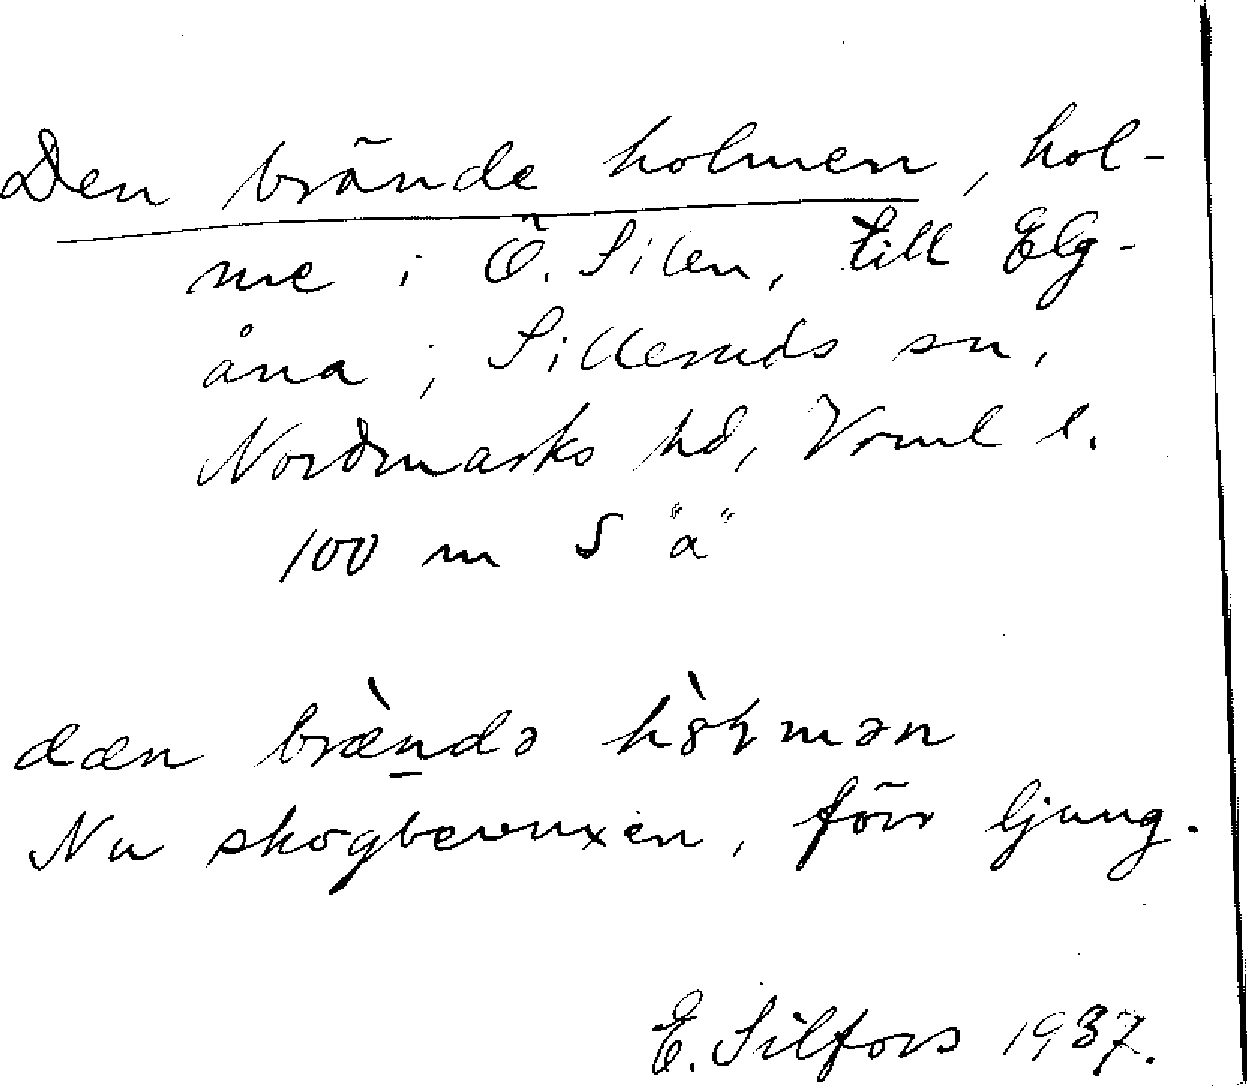 Den brände holmen, hol-
me i Ö. Silen, till Elg-
åna, Silleruds sn,
Nordmarks hd, Vrml l.
100 m S "a"
dæn bræ̀ndə hò̤ɽmən
Nu skogbevuxen, förr ljung.
E. Silfors 1937.